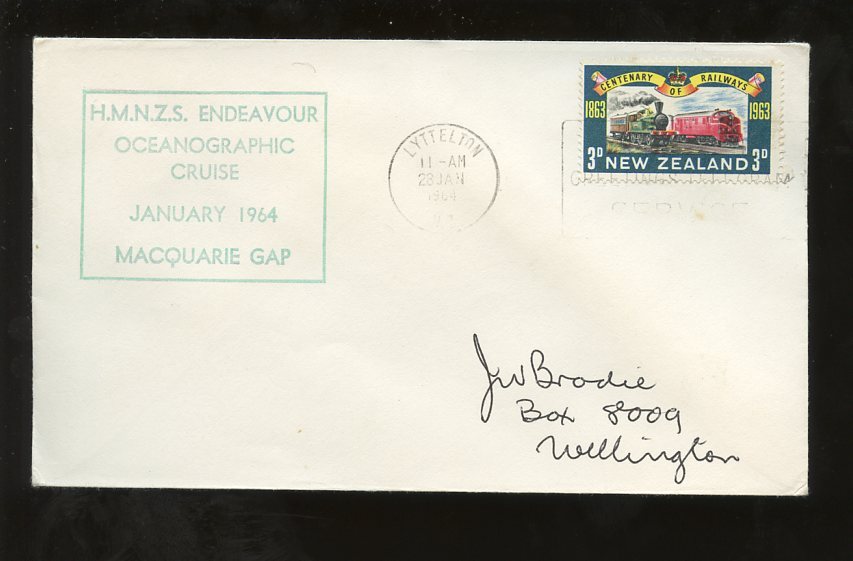 H.M.N.Z.S. ENDEAVOUR
OCEANOGRAPHIC
CRUISE
JANUARY 1964
MACQUARIE GAP
LYTTELTON
11-AM
28 JAN
1964
CENTENARY OF RAILWAYS
1863 1963
3D NEW ZEALAND 3D
SERVICE
JW Brodie
Box 8009
Wellington